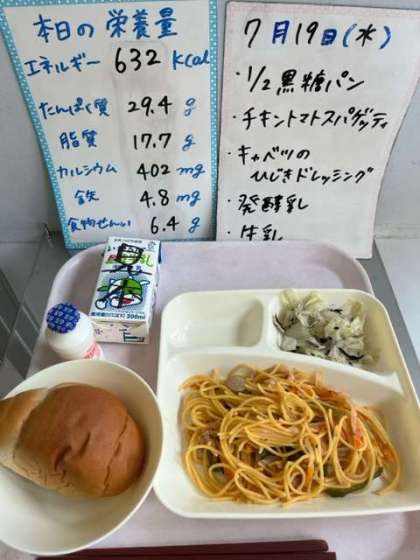 本日の栄養量
エネルギー 632 Kcal
たんぱく質 29.4 g
脂質 17.7 g
カルシウム 402 mg
鉄 4.8 mg
食物せんい 6.4 g
7月19日(水)
・1/2黒糖パン
・チキントマトスパゲッティ
・キャベツの
ひじきドレッシング
・発酵乳
・牛乳
200ml